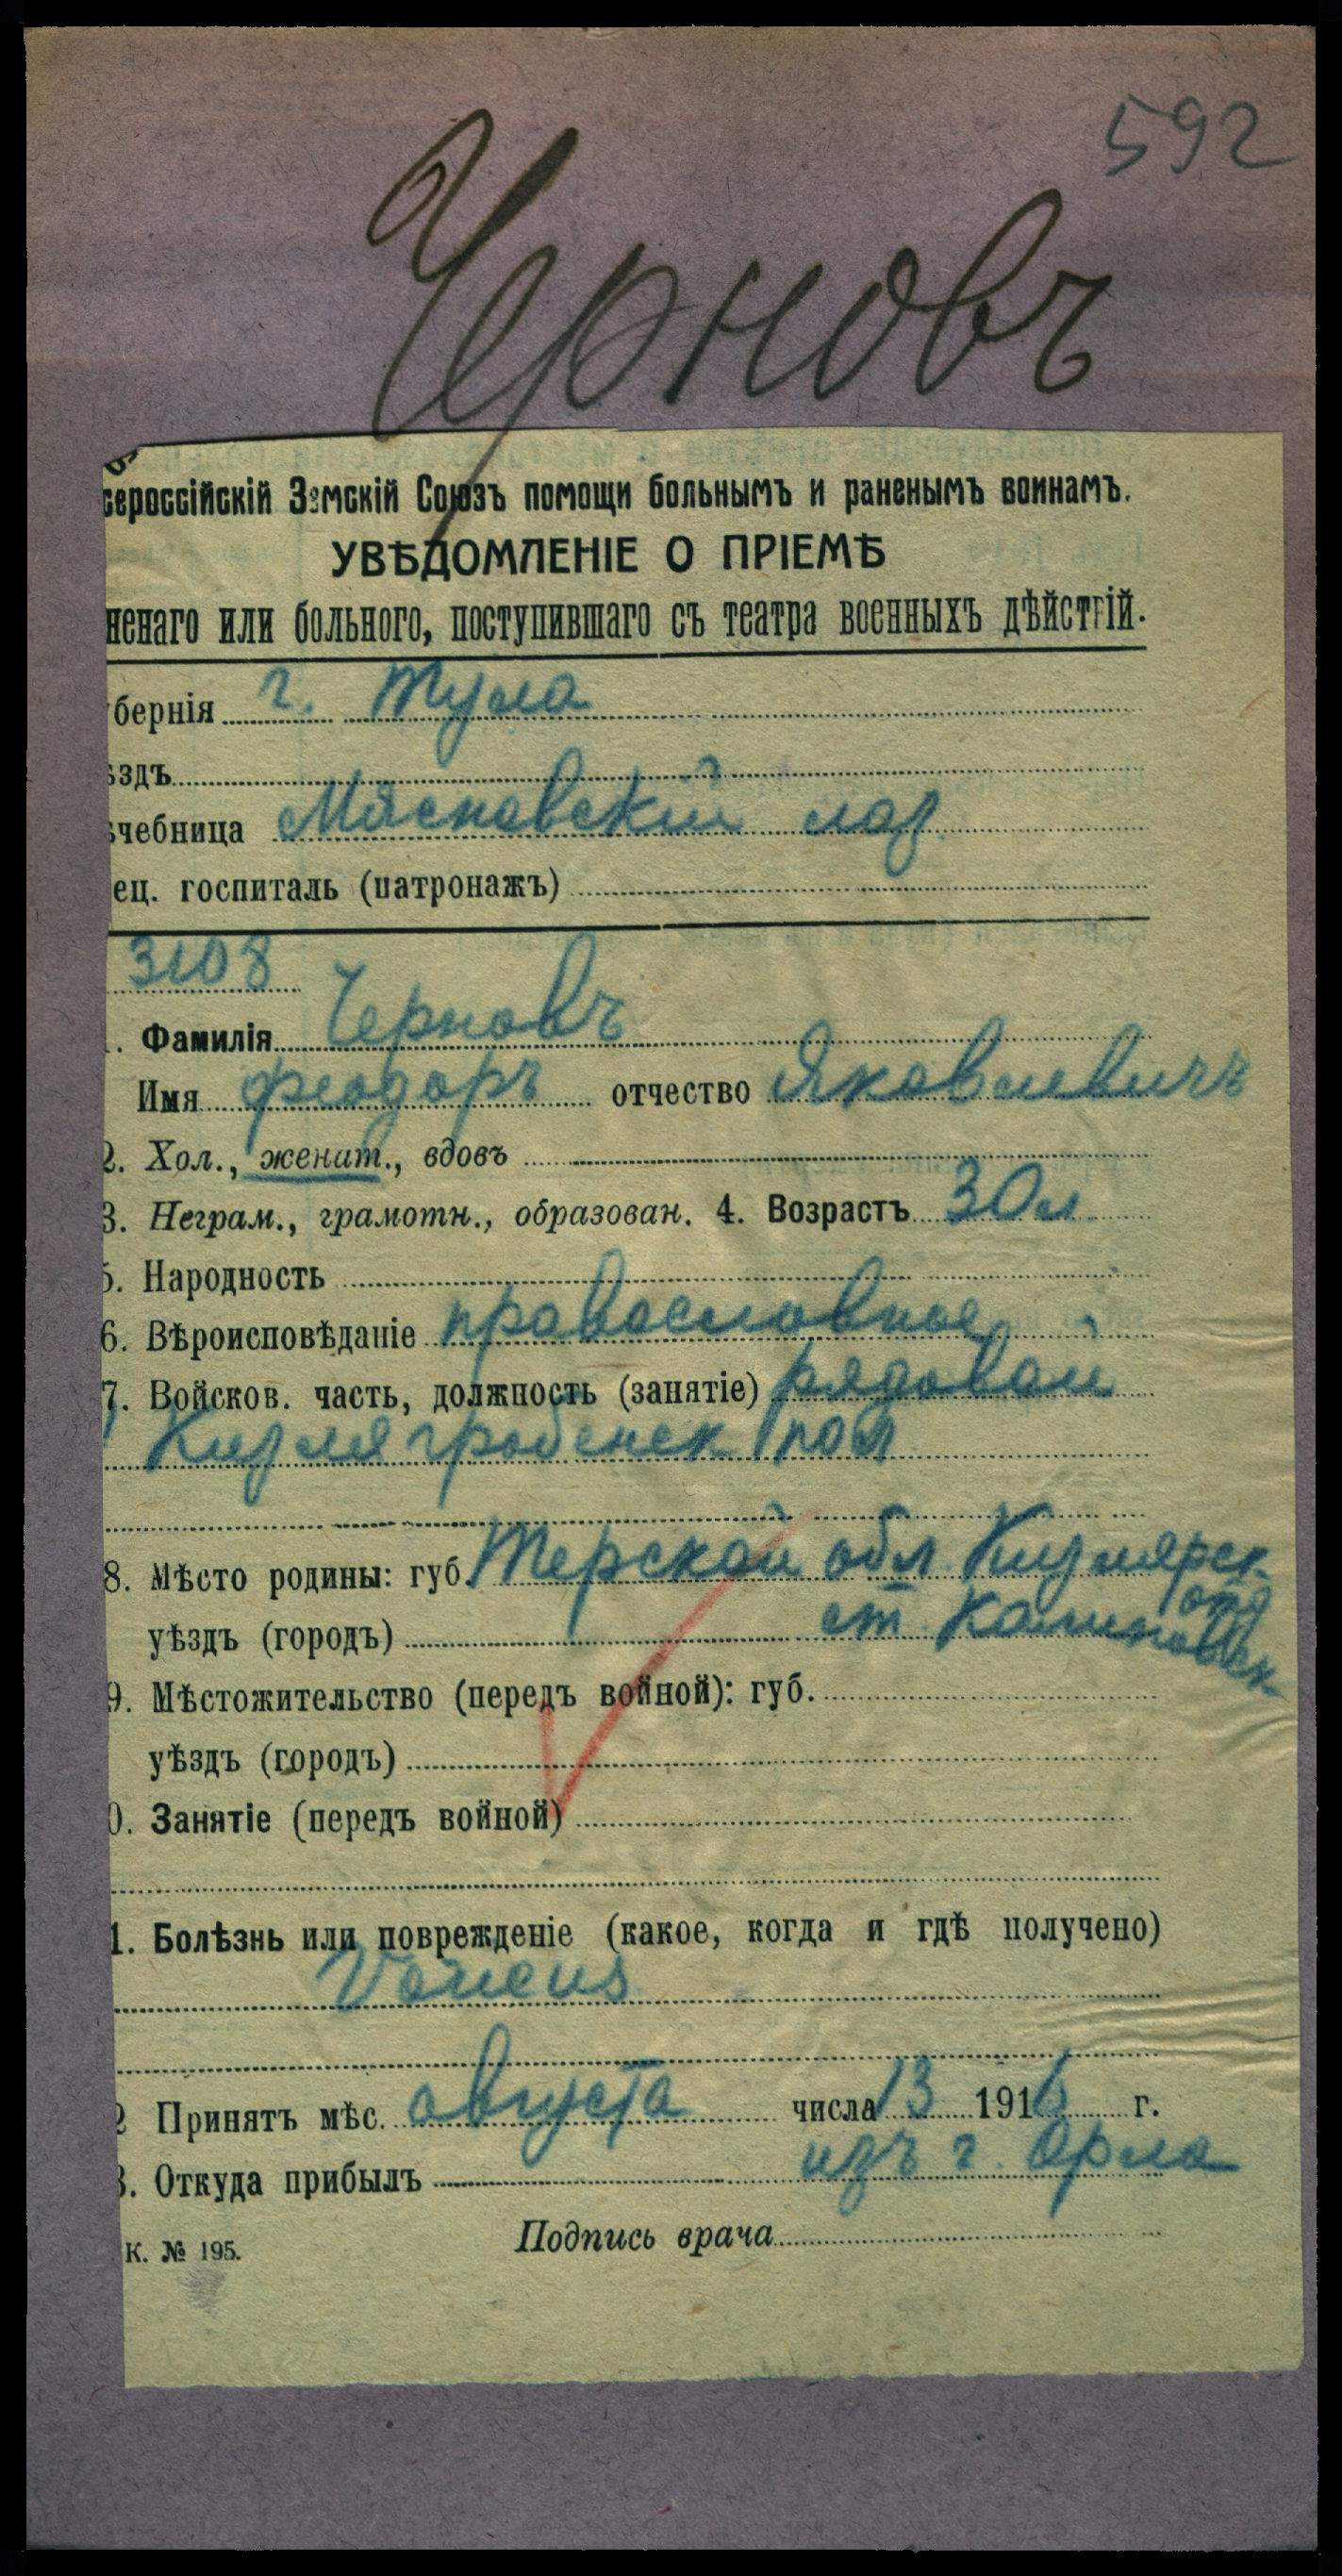 592
Черновъ
сероссійскій Земскій Союзъ помощи больнымъ и раненымъ воинамъ.
УВѢДОМЛЕНІЕ О ПРІЕМѢ
ненаго или больного, поступившаго съ театра военныхъ дѣйствій.
бернія г. Тула
ѣздъ
ѣчебница Мясновский лаз
ец. госпиталь (патронажъ)
3108
1. Фамилія Черновъ
Имя Феодоръ отчество Яковлевичъ
2. Хол., женат., вдовъ
3. Неграм., грамотн., образован. 4. Возрастъ 30 л
5. Народность
6. Вѣроисповѣданіе православное
7. Войсков. часть, должность (занятіе) рядовой
Кизля гребенск пол
8. Мѣсто родины: губ. Терской обл Кизлярск.
отд
уѣздъ (городъ) ст Калиновск.
9. Мѣстожительство (передъ войной): губ.
уѣздъ (городъ)
0. Занятіе (передъ войной)
1. Болѣзнь или поврежденіе (какое, когда и гдѣ получено)
2 Принятъ мѣс. августа числа 13 1916 г.
3. Откуда прибылъ изъ г. Орла
К. № 195. Подпись врача